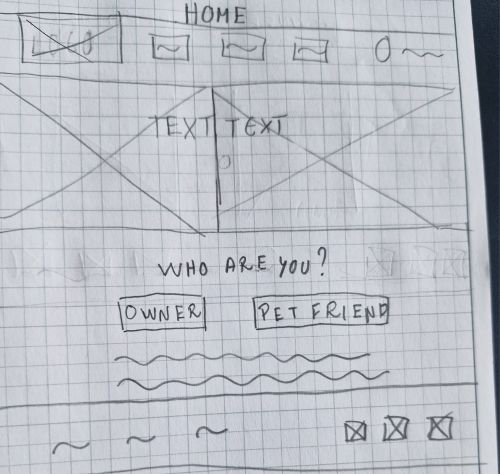 HOME
LOGO
TEXT TEXT
WHO ARE YOU?
OWNER PET FRIEND